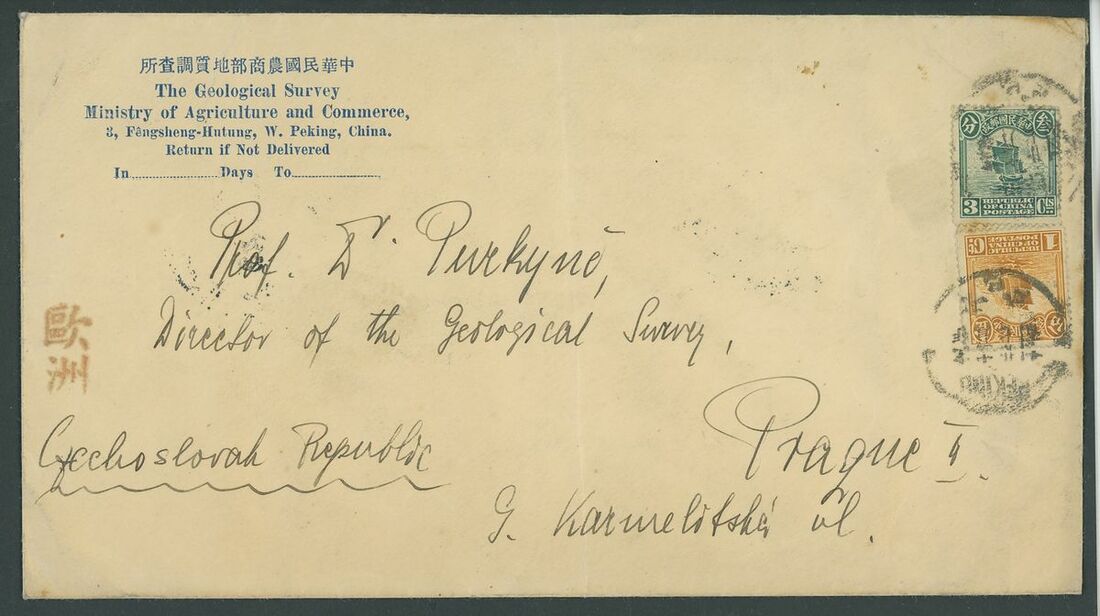 所查調質地部商農國民華中
The Geological Survey
Ministry of Agriculture and Commerce,
3, Fêngsheng-Hutung, W. Peking, China.
Return if Not Delivered
In.......................Days To.......................
Prof. Dr. Purkyně,
Director of the Geological Survey,
Prague II.
G. Karmelitská ul.
Czechoslovak Republic
歐洲
分 政郵國民華中 叁
3 REPUBLIC OF CHINA POSTAGE Cts
1 REPUBLIC OF CHINA POSTAGE Ct
PEKING